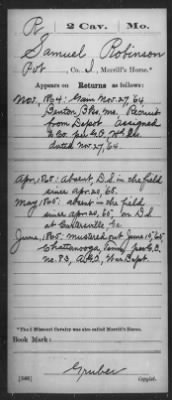 R 2 Cav. Mo.
Samuel Robinson
Pvt, Co. I, Merrill's Horse.*
Appears on Returns as follows:
Nov, 1864: Gain Nov. 27, 64
Benton Bks. Mo. Recruit
from Depot assigned
to Co. per
dated Nov. 27, 64.
Apr, 1865: absent, D.S. in the field
since Apr. 20, 65.
May 1865: absent in the field
since apr. 20, 65 on D.S.
at Cartersville Ga
June, 1865: mustered out June 15, 65
Chattanooga, Tenn., per G.O.
no. 83, A.G.O., War Dept.
*The 2 Missouri Cavalry was also called Merrill's Horse.
Book Mark:
Gruber
Copyist.